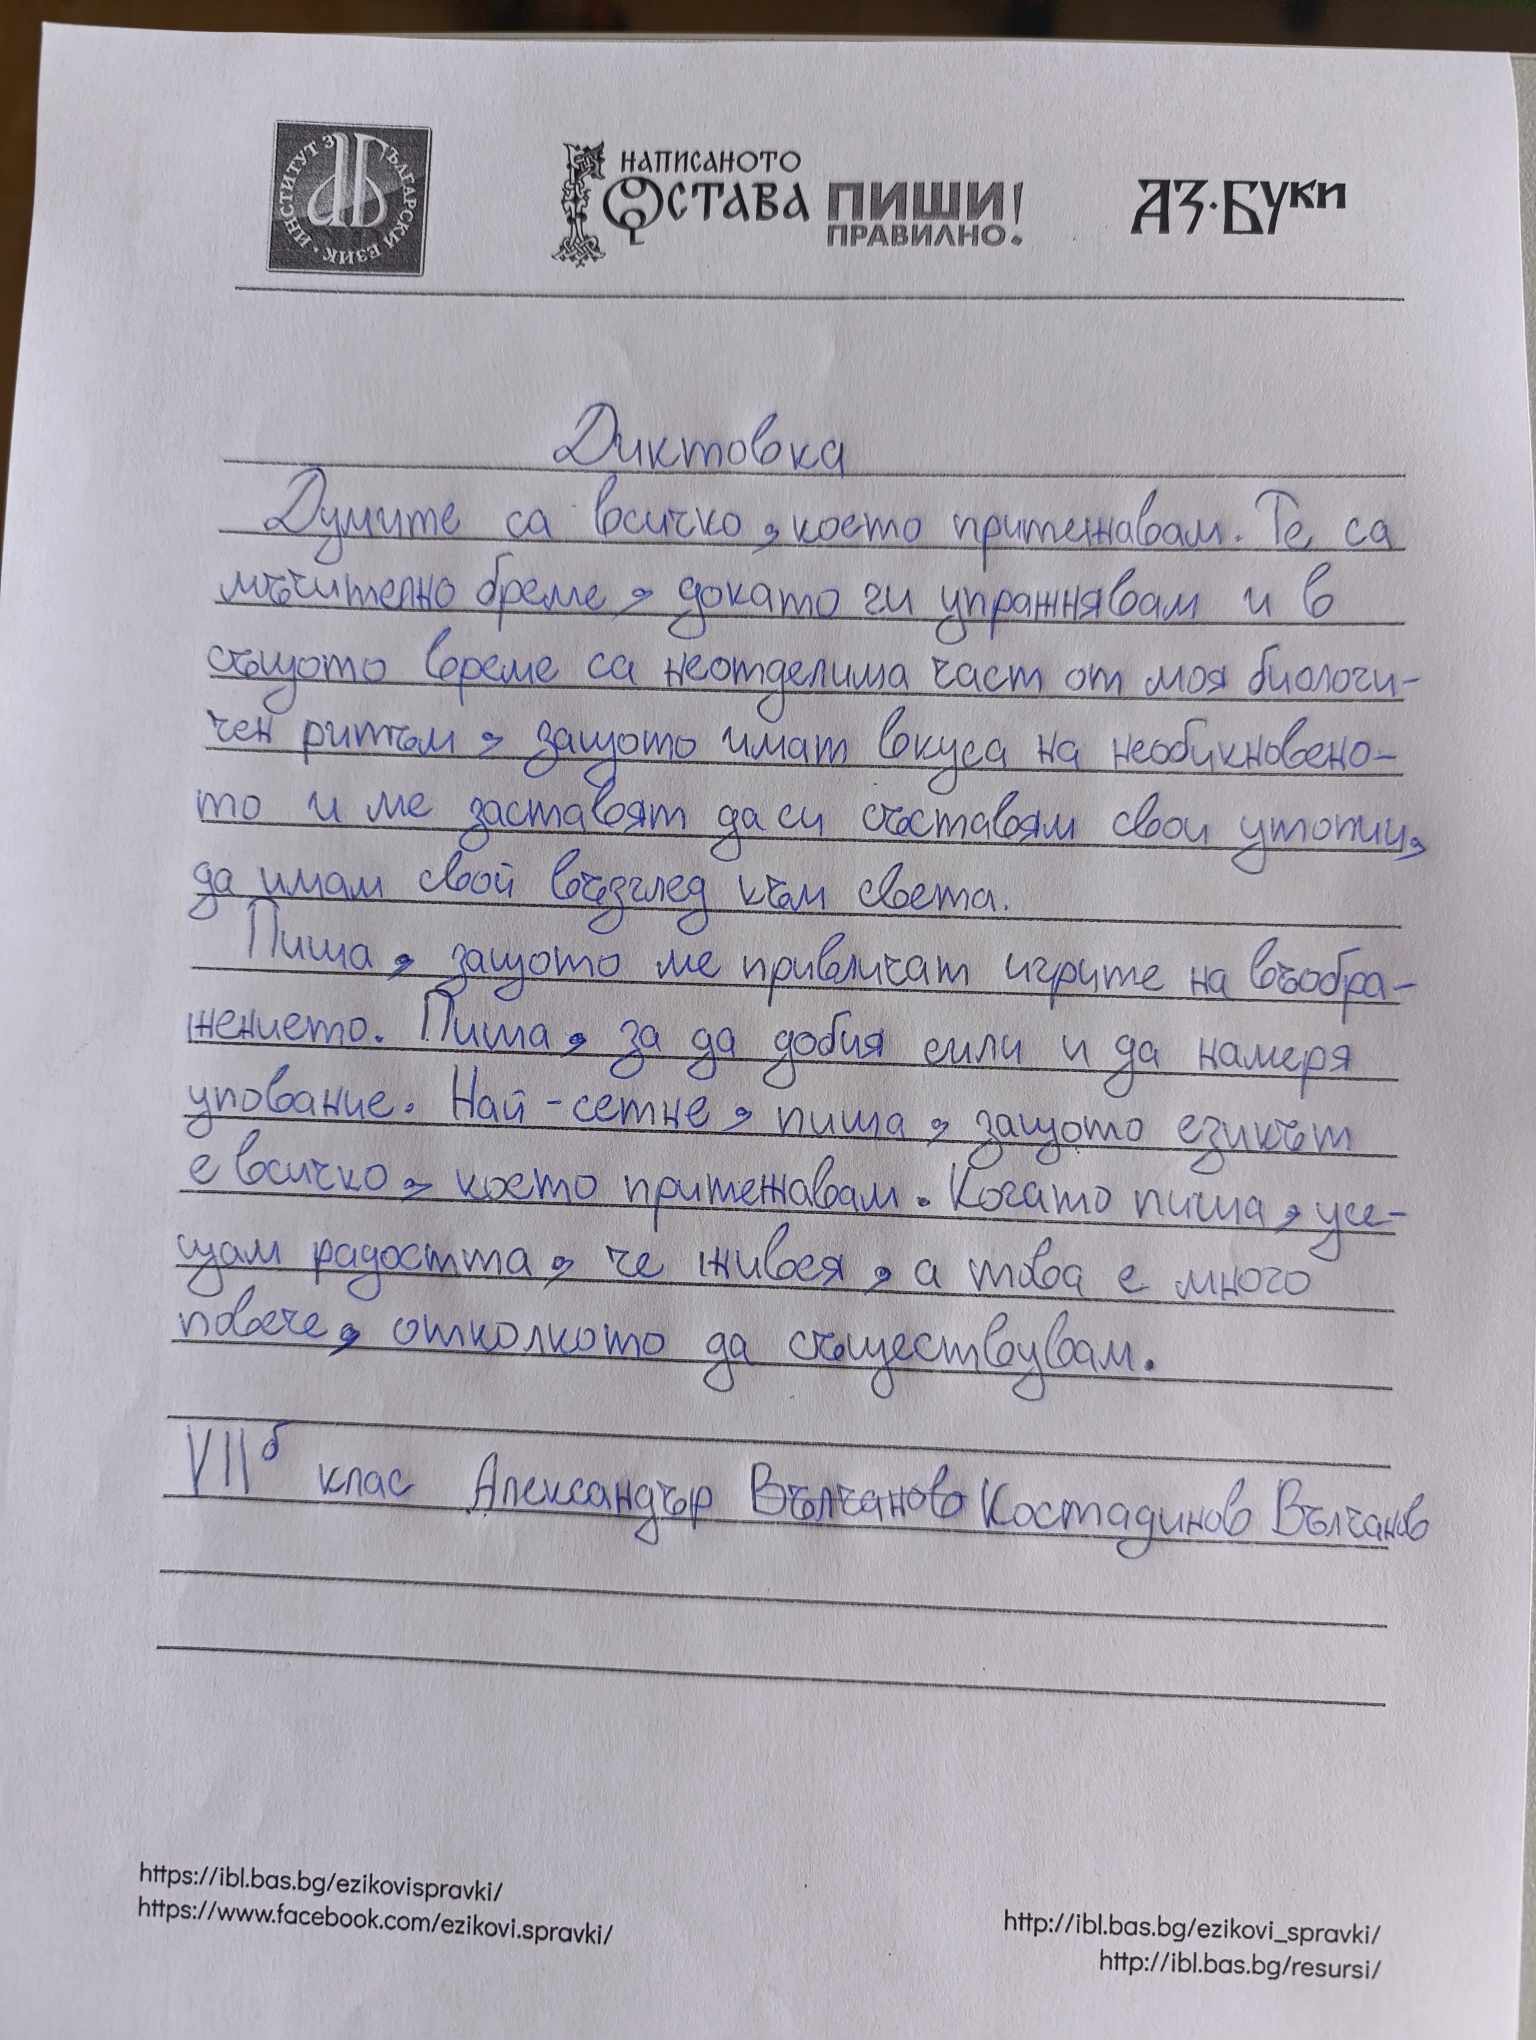 ИНСТИТУТ ЗА БЪЛГАРСКИ ЕЗИК
НАПИСАНОТО
ОСТАВА
ПИШИ!
ПРАВИЛНО.
АЗ·БУКИ
Диктовка
Думите са всичко, което притежавам. Те са
мъчително бреме, докато ги упражнявам и в
същото време са неотделима част от моя биологи-
чен ритъм, защото имат вкуса на необикновено-
то и ме заставят да си съставям свои утопии,
да имам свой възглед към света.
Пиша, защото ме привличат игрите на въобра-
жението. Пиша, за да добия сили и да намеря
упование. Най-сетне, пиша, защото езикът
е всичко, което притежавам. Когато пиша, усе-
щам радостта, че живея, а това е много
повече, отколкото да съществувам.
VII б клас Александър Вълчанов Костадинов Вълчанов
https://ibl.bas.bg/ezikovispravki/
https://www.facebook.com/ezikovi.spravki/
http://ibl.bas.bg/ezikovi_spravki/
http://ibl.bas.bg/resursi/